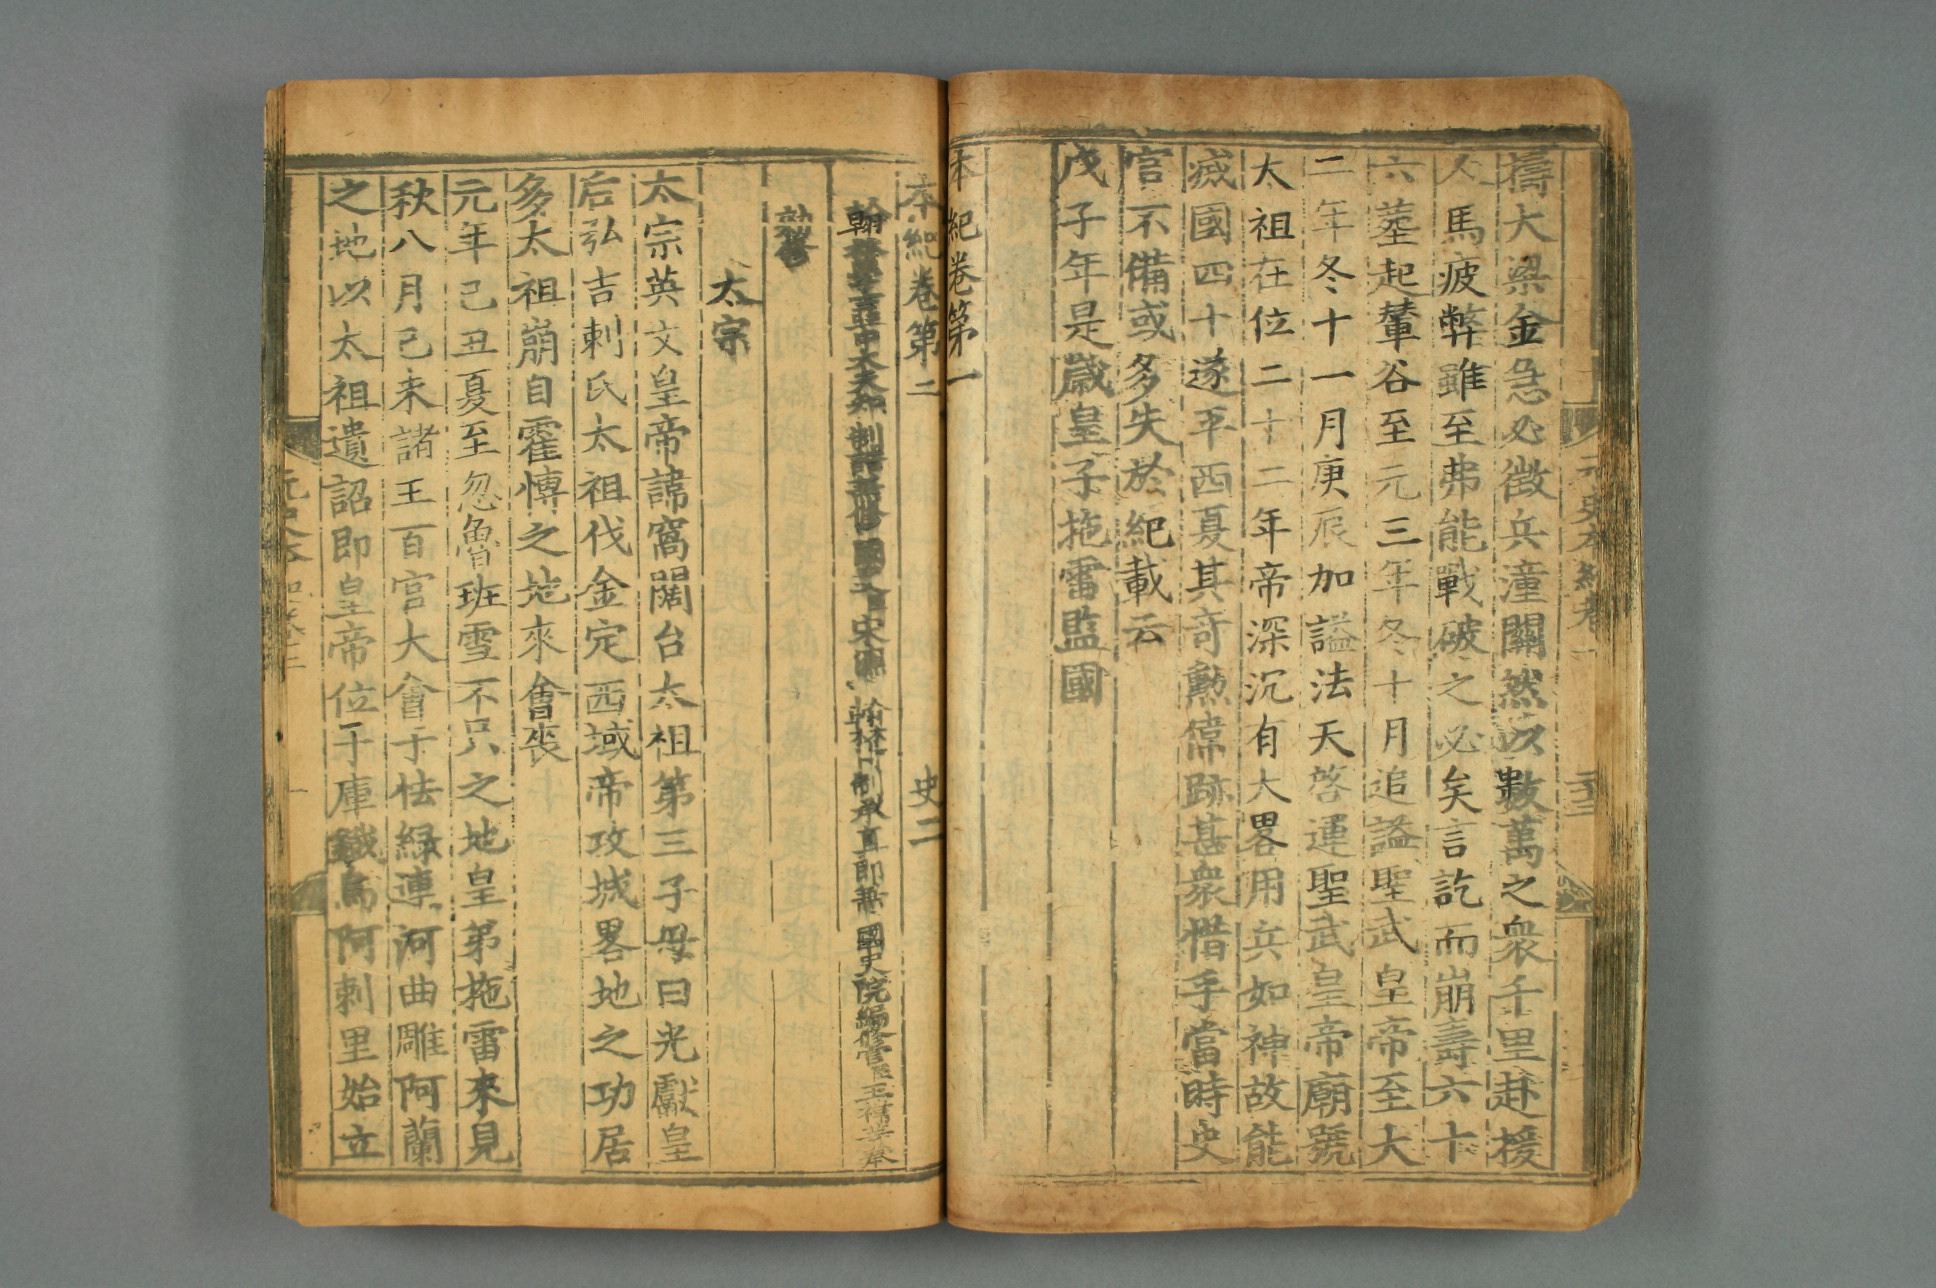 擣大梁金急必徵兵潼關然以數萬之衆千里赴援
人馬疲弊雖至弗能戰破之必矣言訖而崩壽六十
六塟起輦谷至元三年冬十月追謚聖武皇帝至大
二年冬十一月庚辰加謚法天啓運聖武皇帝廟號
太祖在位二十二年帝深沉有大畧用兵如神故能
滅國四十遂平西夏其奇勲偉跡甚衆惜乎當時史
官不備或多失於紀載云
戊子年是歲皇子拖雷監國
本紀卷第一
本紀卷第二 史二
翰林學士亞中大夫知制誥兼修國史宋濂 翰林待制承直郎兼國史院編修官王禕等奉
勑修
太宗
太宗英文皇帝諱窩闊台太祖第三子母曰光獻皇
后弘吉剌氏太祖伐金定西域帝攻城畧地之功居
多太祖崩自霍博之地來會喪
元年己丑夏至忽魯班雪不只之地皇弟拖雷來見
秋八月己未諸王百官大會于怯綠連河曲雕阿蘭
之地以太祖遺詔即皇帝位于庫鐵烏阿剌里始立